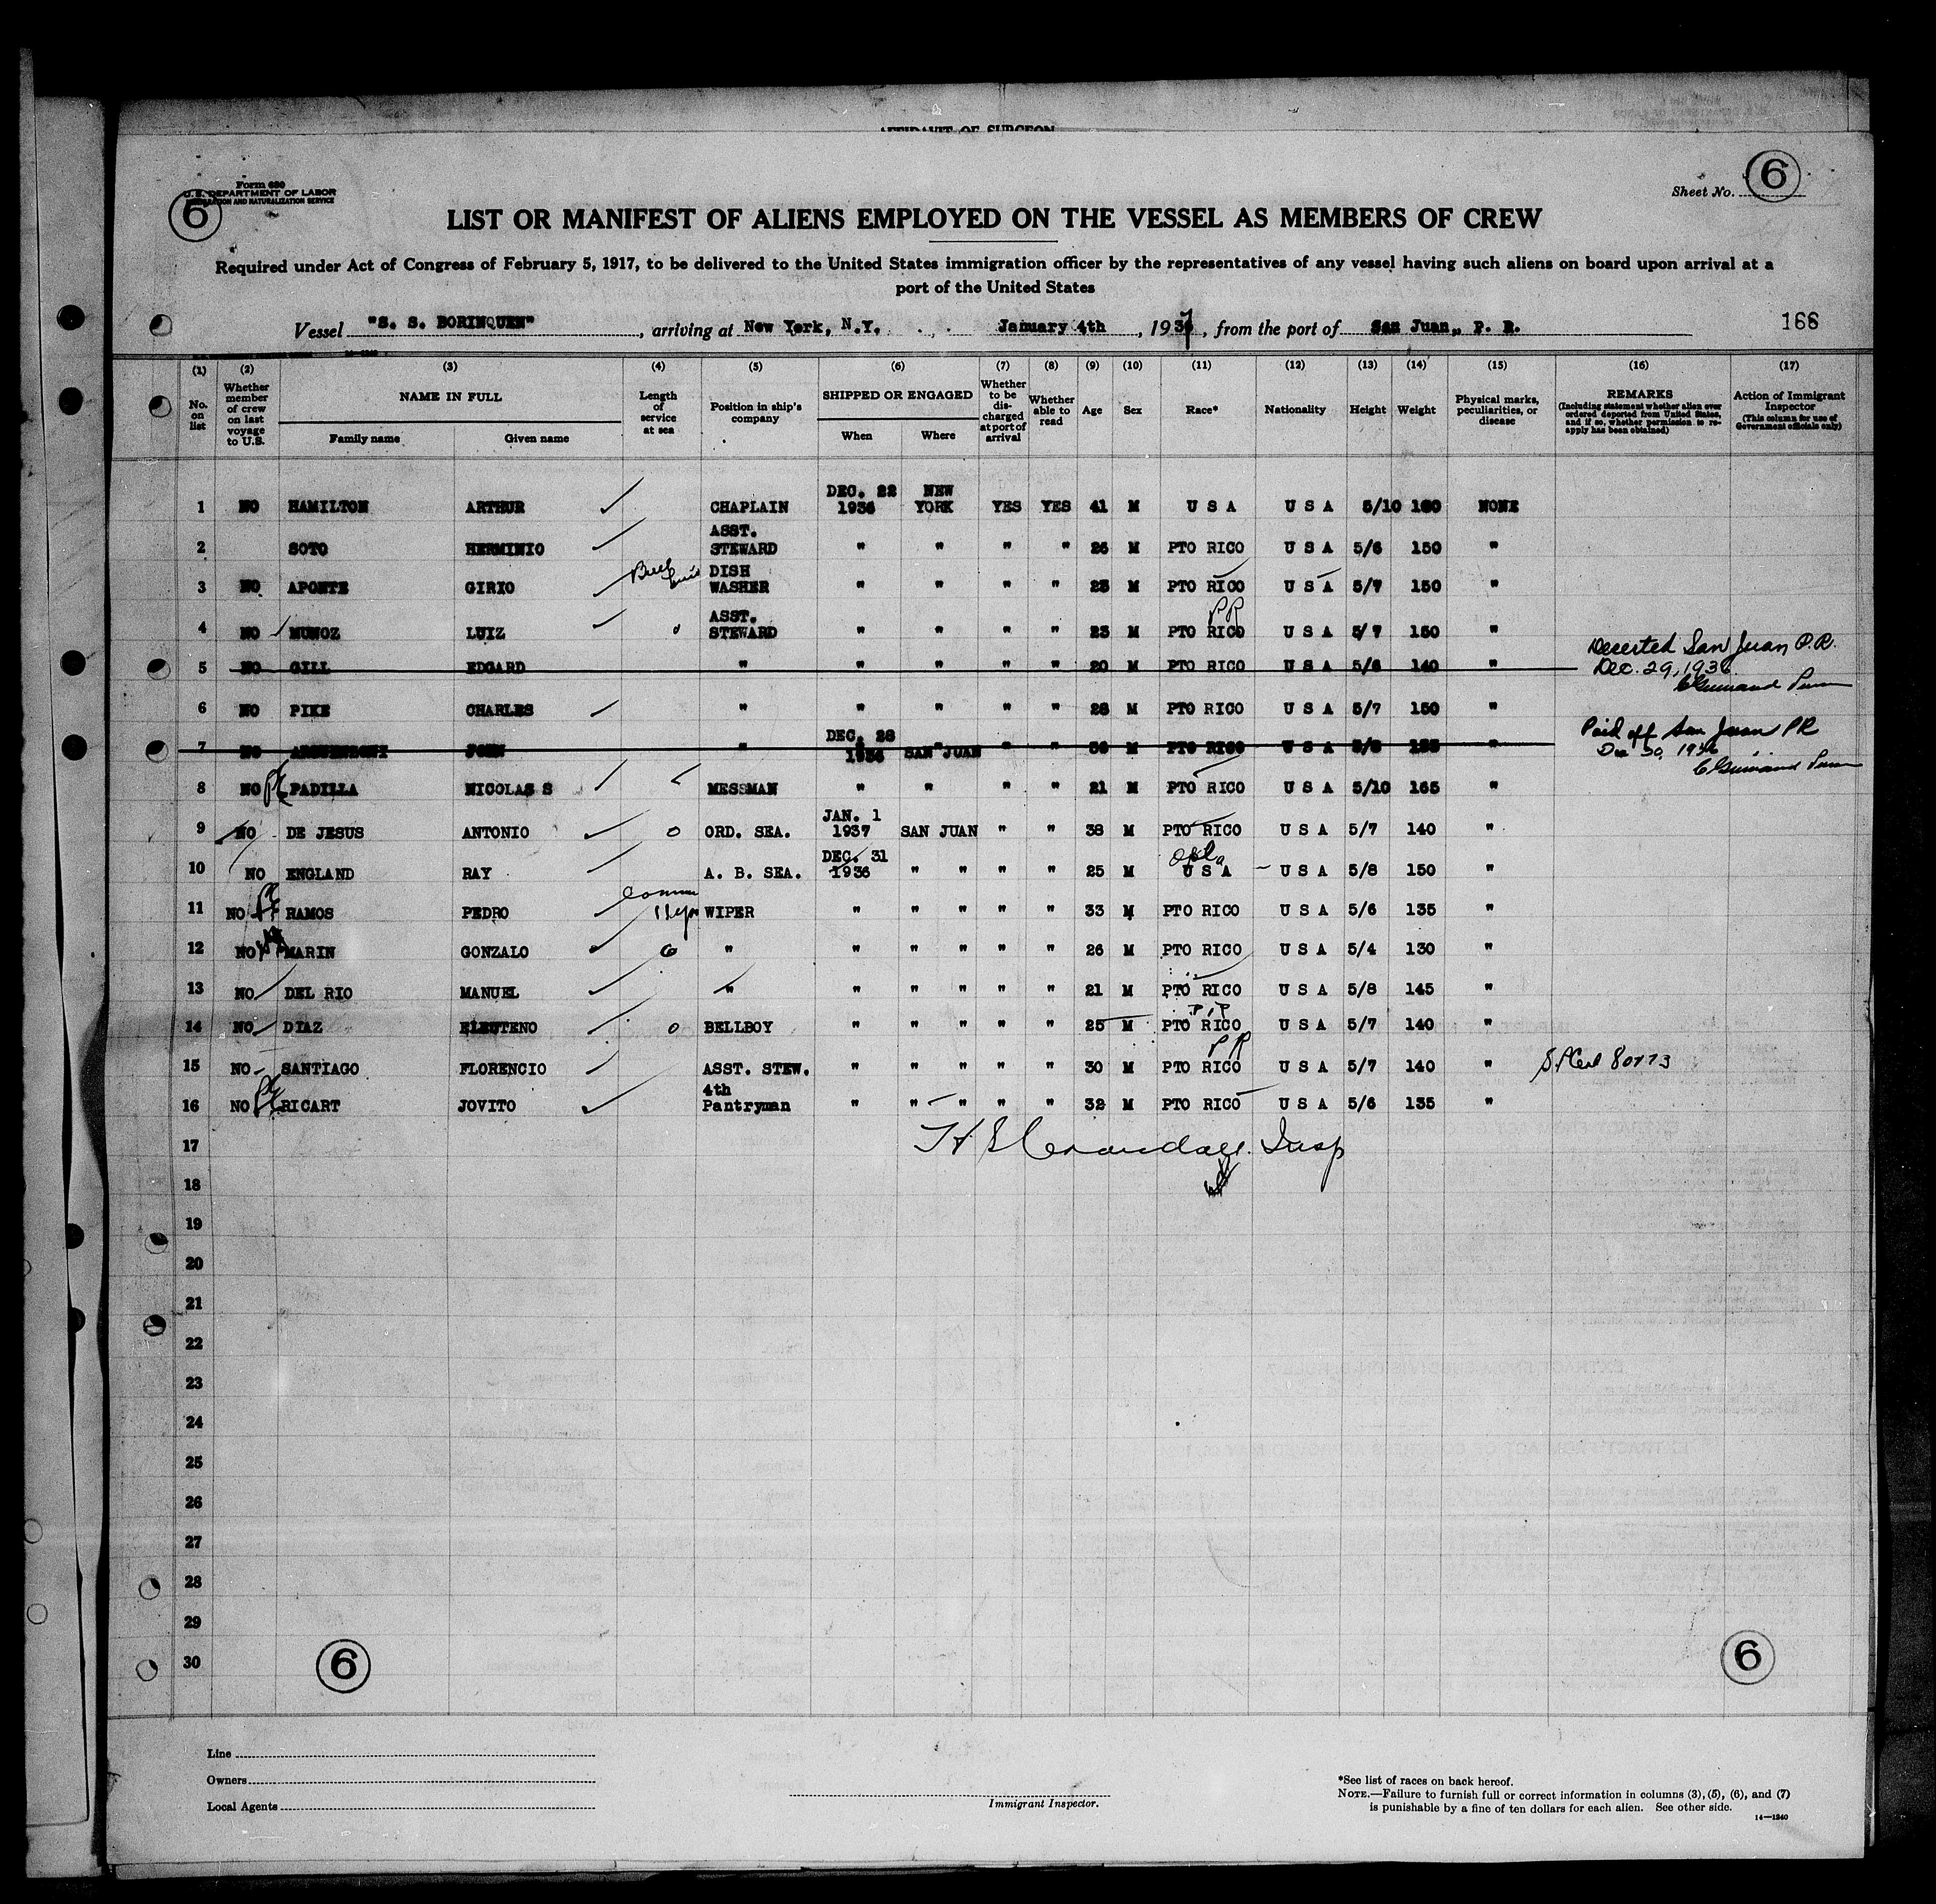 AFFIDAVIT OF SURGEON
Form 680
U. S. DEPARTMENT OF LABOR
IMMIGRATION AND NATURALIZATION SERVICE
6
Sheet No. 6
LIST OR MANIFEST OF ALIENS EMPLOYED ON THE VESSEL AS MEMBERS OF CREW
Required under Act of Congress of February 5, 1917, to be delivered to the United States immigration officer by the representatives of any vessel having such aliens on board upon arrival at a
port of the United States
Vessel "S. S. BORINQUEN", arriving at New York, N.Y. January 4th, 1937, from the port of San Juan, P. R.
166
(1) No. on list
(2) Whether member of crew on last voyage to U.S.
(3) NAME IN FULL Family name Given name
(4) Length of service at sea
(5) Position in ship's company
(6) SHIPPED OR ENGAGED When Where
(7) Whether to be discharged at port of arrival
(8) Whether able to read
(9) Age
(10) Sex
(11) Race*
(12) Nationality
(13) Height
(14) Weight
(15) Physical marks, peculiarities, or disease
(16) REMARKS (Including statement whether alien ever ordered deported from United States, and if so, whether permission to reapply has been obtained)
(17) Action of Immigrant Inspector (This column for use of Government officials only)
1 NO HAMILTON ARTHUR CHAPLAIN DEC. 22 1936 NEW YORK YES YES 41 M U S A U S A 5/10 160 NONE
2 SOTO HERMINIO ASST. STEWARD " " " " 26 M PTO RICO U S A 5/6 150 "
3 NO APONTE GIRIO DISH WASHER " " " " 23 M PTO RICO U S A 5/7 150 "
4 NO MUNOZ LUIZ ASST. STEWARD " " " " 23 M PTO RICO PR U S A 5/7 150 "
5 NO GILL EDGARD " " " " " 20 M PTO RICO U S A 5/6 140 " Deserted San Juan P.R. Dec. 29, 1936
6 NO PIKE CHARLES " " " " " 28 M PTO RICO U S A 5/7 150 "
7 NO JOHN " DEC. 28 1936 SAN JUAN " " M PTO RICO U S A " Paid off San Juan PR Dec 30, 1936
8 NO PADILLA NICOLAS S MESSMAN " " " " 21 M PTO RICO U S A 5/10 165 "
9 NO DE JESUS ANTONIO 0 ORD. SEA. JAN. 1 1937 SAN JUAN " " 38 M PTO RICO U S A 5/7 140 "
10 NO ENGLAND RAY A. B. SEA. DEC. 31 1936 " " " " 25 M U S A U S A 5/8 150 "
11 NO RAMOS PEDRO WIPER " " " " " 33 M PTO RICO U S A 5/6 135 "
12 NO MARIN GONZALO 6 " " " " " " 26 M PTO RICO U S A 5/4 130 "
13 NO DEL RIO MANUEL " " " " " " 21 M PTO RICO U S A 5/8 145 "
14 NO DIAZ ELEUTENO 0 BELLBOY " " " " " 25 M PTO RICO P.R U S A 5/7 140 "
15 NO SANTIAGO FLORENCIO ASST. STEW. " " " " " 30 M PTO RICO PR U S A 5/7 140 "
16 NO RICART JOVITO 4th Pantryman " " " " " 32 M PTO RICO U S A 5/6 135 "
17 Crandall Insp
18
19
20
21
22
23
24
25
26
27
28
29
30
6
6
Line
Owners
Local Agents
Immigrant Inspector.
*See list of races on back hereof.
NOTE.—Failure to furnish full or correct information in columns (3), (5), (6), and (7)
is punishable by a fine of ten dollars for each alien. See other side.
14—1240